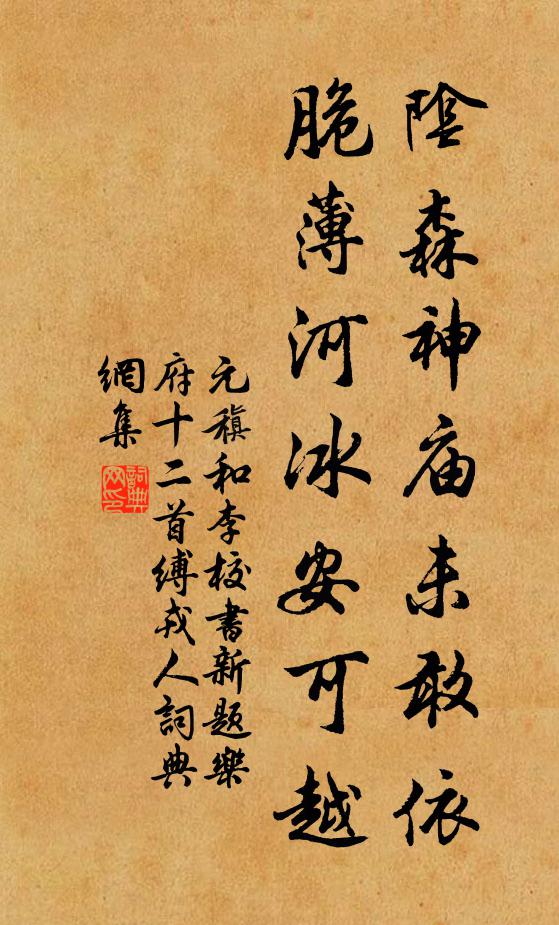 陰森神庙未敢依
脆薄河冰安可越
元稹和李校書新題樂
府十二首縛戎人詞典
網集
詞典
网印